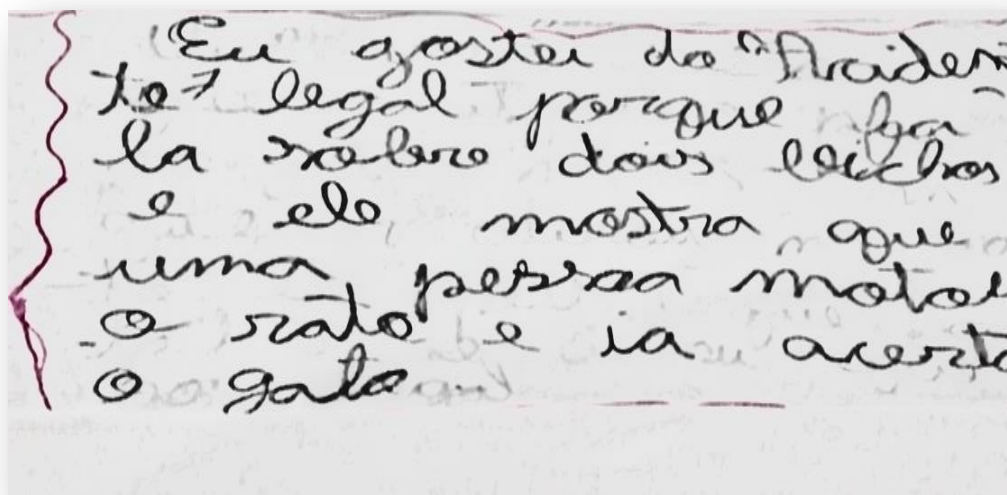 Eu gostei do "Aciden
te" legal porque fa
la sobre dois bichos
e ele mostra que
uma pessoa matou
o rato e ia acerta
o gato